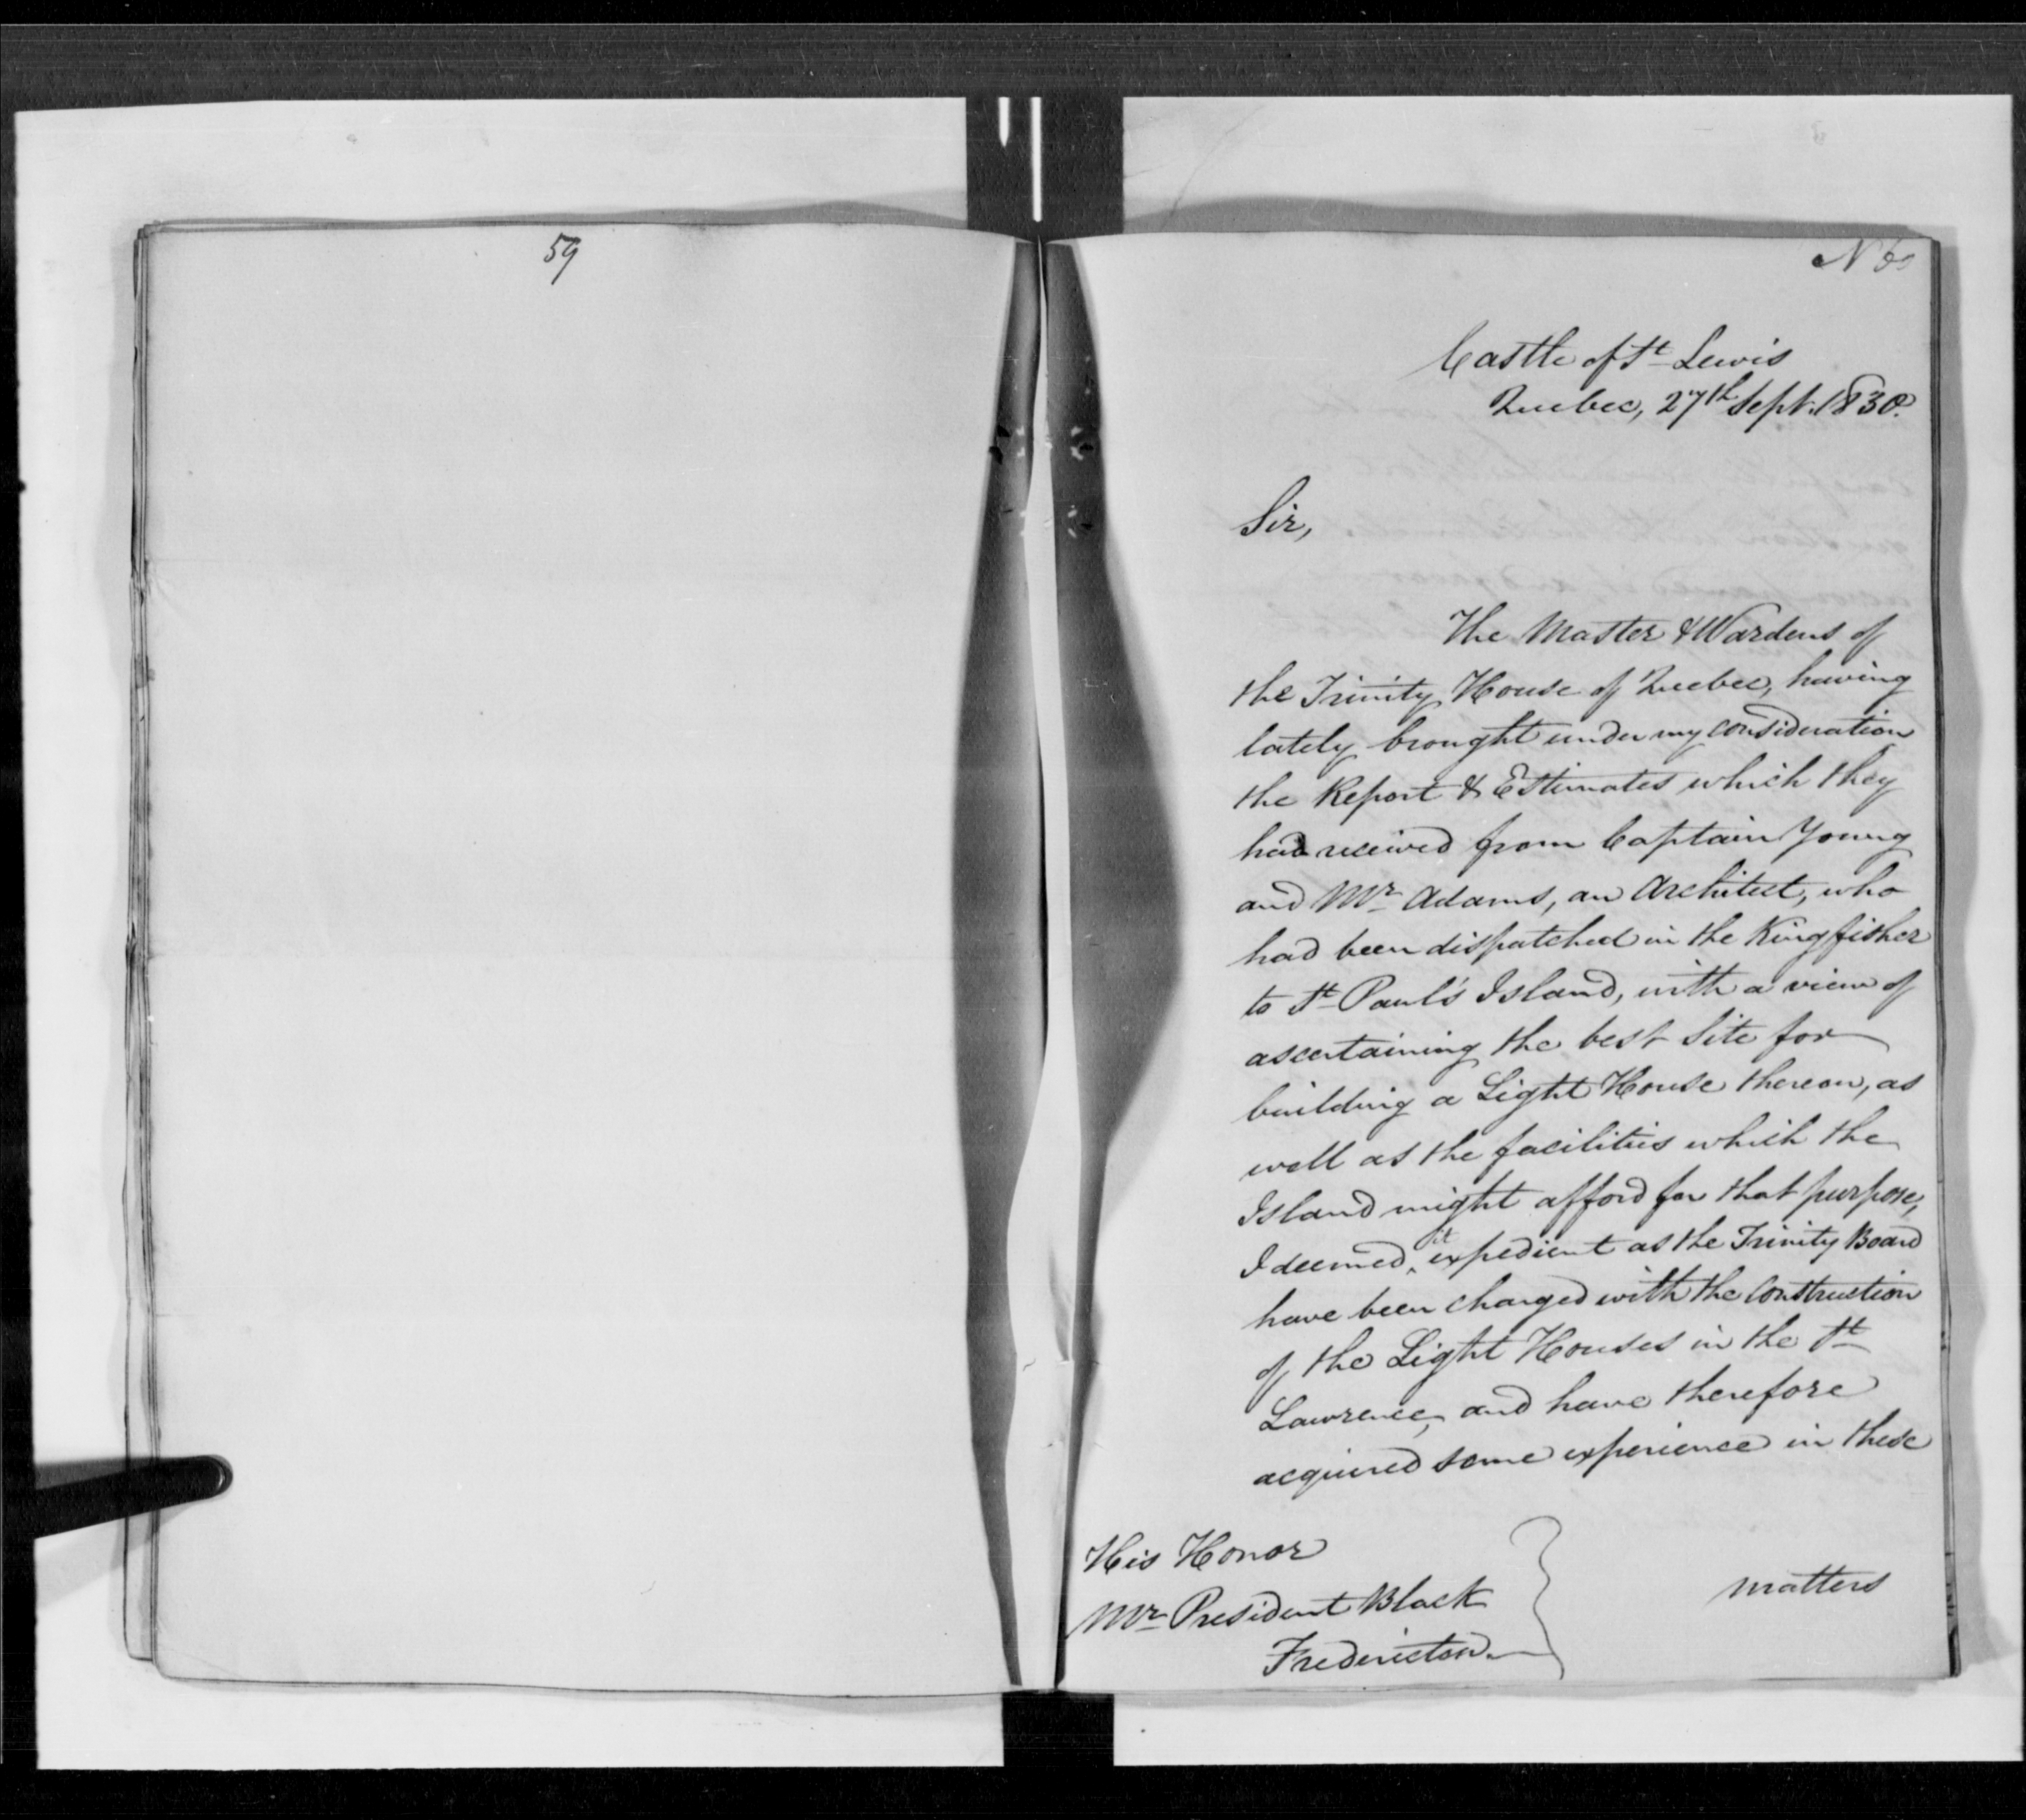 59
Castle of St Lewis
Quebec, 27th Sept. 1830.
Sir,
The Master & Wardens of
the Trinity House of Quebec, having
lately brought under my consideration
the Report & Estimates which they
had received from Captain Young
and Mr Adams, an Architect, who
had been dispatched in the Kingfisher
to St Paul's Island, with a view of
ascertaining the best Site for
building a Light House thereon, as
well as the facilities which the
Island might afford for that purpose,
I deemed it expedient as the Trinity Board
have been charged with the Construction
of the Light Houses in the St
Lawrence, and have therefore
acquired some experience in these
matters
His Honor
Mr President Black
Fredericton.